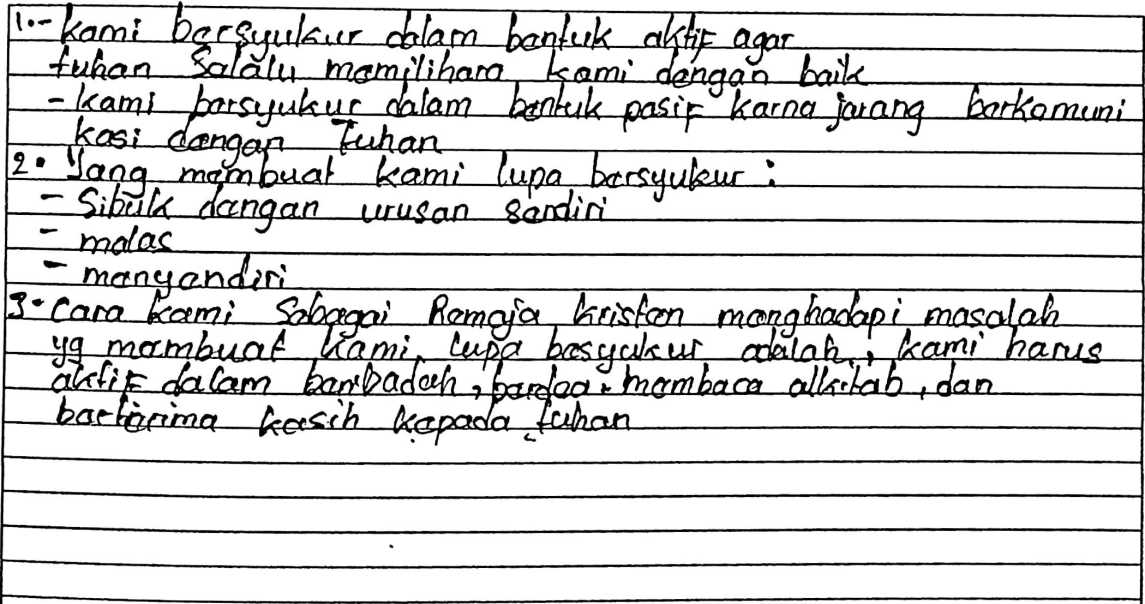 1.- kami bersyukur dalam bentuk aktif agar
tuhan Selalu memilihara kami dengan baik
- kami bersyukur dalam bentuk pasif karna jarang berkomuni
kasi dengan Tuhan
2. Yang membuat kami lupa bersyukur :
- Sibuk dengan urusan sendiri
- malas
- menyendiri
3. Cara kami Sebagai Remaja kristen menghadapi masalah
yg membuat kami lupa besyukur adalah, kami harus
aktif dalam beribadah, berdoa, membaca alkitab, dan
berterima kasih kepada tuhan